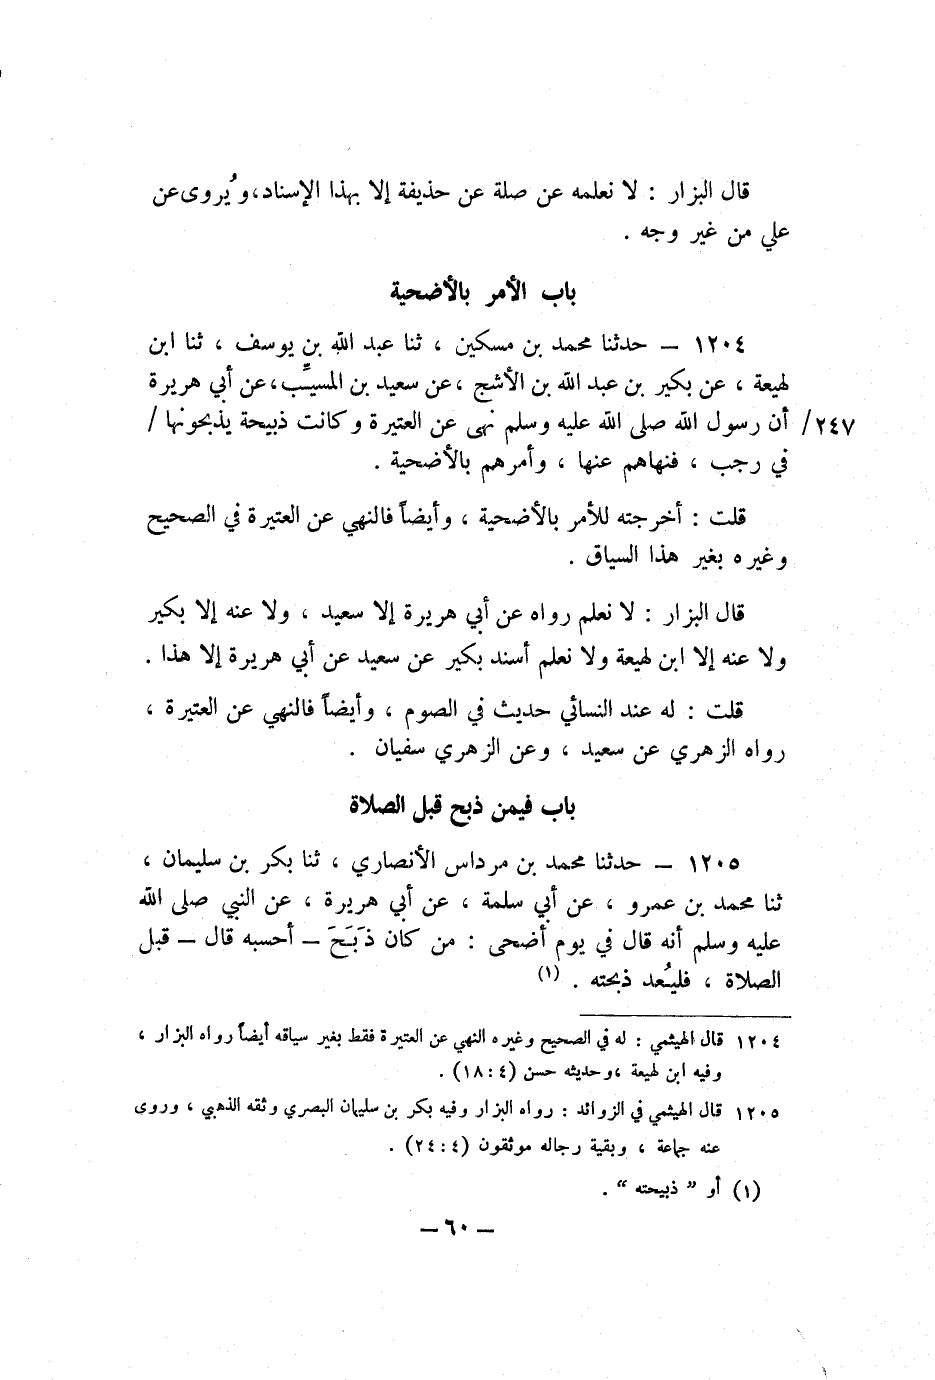 قال البزار : لا نعلمه عن صلة عن حذيفة إلا بهذا الإسناد، ويُروى عن
علي من غير وجه .
باب الأمر بالأضحية
١٢٠٤ – حدثنا محمد بن مسكين ، ثنا عبد الله بن يوسف ، ثنا ابن
لهيعة ، عن بكير بن عبد الله بن الأشج ،عن سعيد بن المسيَّب،عن أبي هريرة
٢٤٧/ أن رسول الله صلى الله عليه وسلم نهى عن العتيرة وكانت ذبيحة يذبحونها /
في رجب ، فنهاهم عنها ، وأمرهم بالأضحية .
قلت : أخرجته للأمر بالأضحية ، وأيضاً فالنهي عن العتيرة في الصحيح
وغيره بغير هذا السياق .
قال البزار : لا نعلم رواه عن أبي هريرة إلا سعيد ، ولا عنه إلا بكير
ولا عنه إلا ابن لهيعة ولا نعلم أسند بكير عن سعيد عن أبي هريرة إلا هذا .
قلت : له عند النسائي حديث في الصوم ، وأيضاً فالنهي عن العتيرة ،
رواه الزهري عن سعيد ، وعن الزهري سفيان .
باب فيمن ذبح قبل الصلاة
١٢٠٥ – حدثنا محمد بن مرداس الأنصاري ، ثنا بكر بن سليمان ،
ثنا محمد بن عمرو ، عن أبي سلمة ، عن أبي هريرة ، عن النبي صلى الله
عليه وسلم أنه قال في يوم أضحى : من كان ذَبَحَ – أحسبه قال – قبل
الصلاة ، فليُعد ذبحته . (١)
١٢٠٤ قال الهيثمي : له في الصحيح وغيره النهي عن العتيرة فقط بغير سياقه أيضاً رواه البزار ،
وفيه ابن لهيعة ،وحديثه حسن (٤:١٨) .
١٢٠٥ قال الهيثمي في الزوائد : رواه البزار وفيه بكر بن سليمان البصري وثقه الذهبي ، وروى
عنه جماعة ، وبقية رجاله موثقون (٤:٢٤) .
(١) أو ” ذبيحته “ .
– ٦٠ –